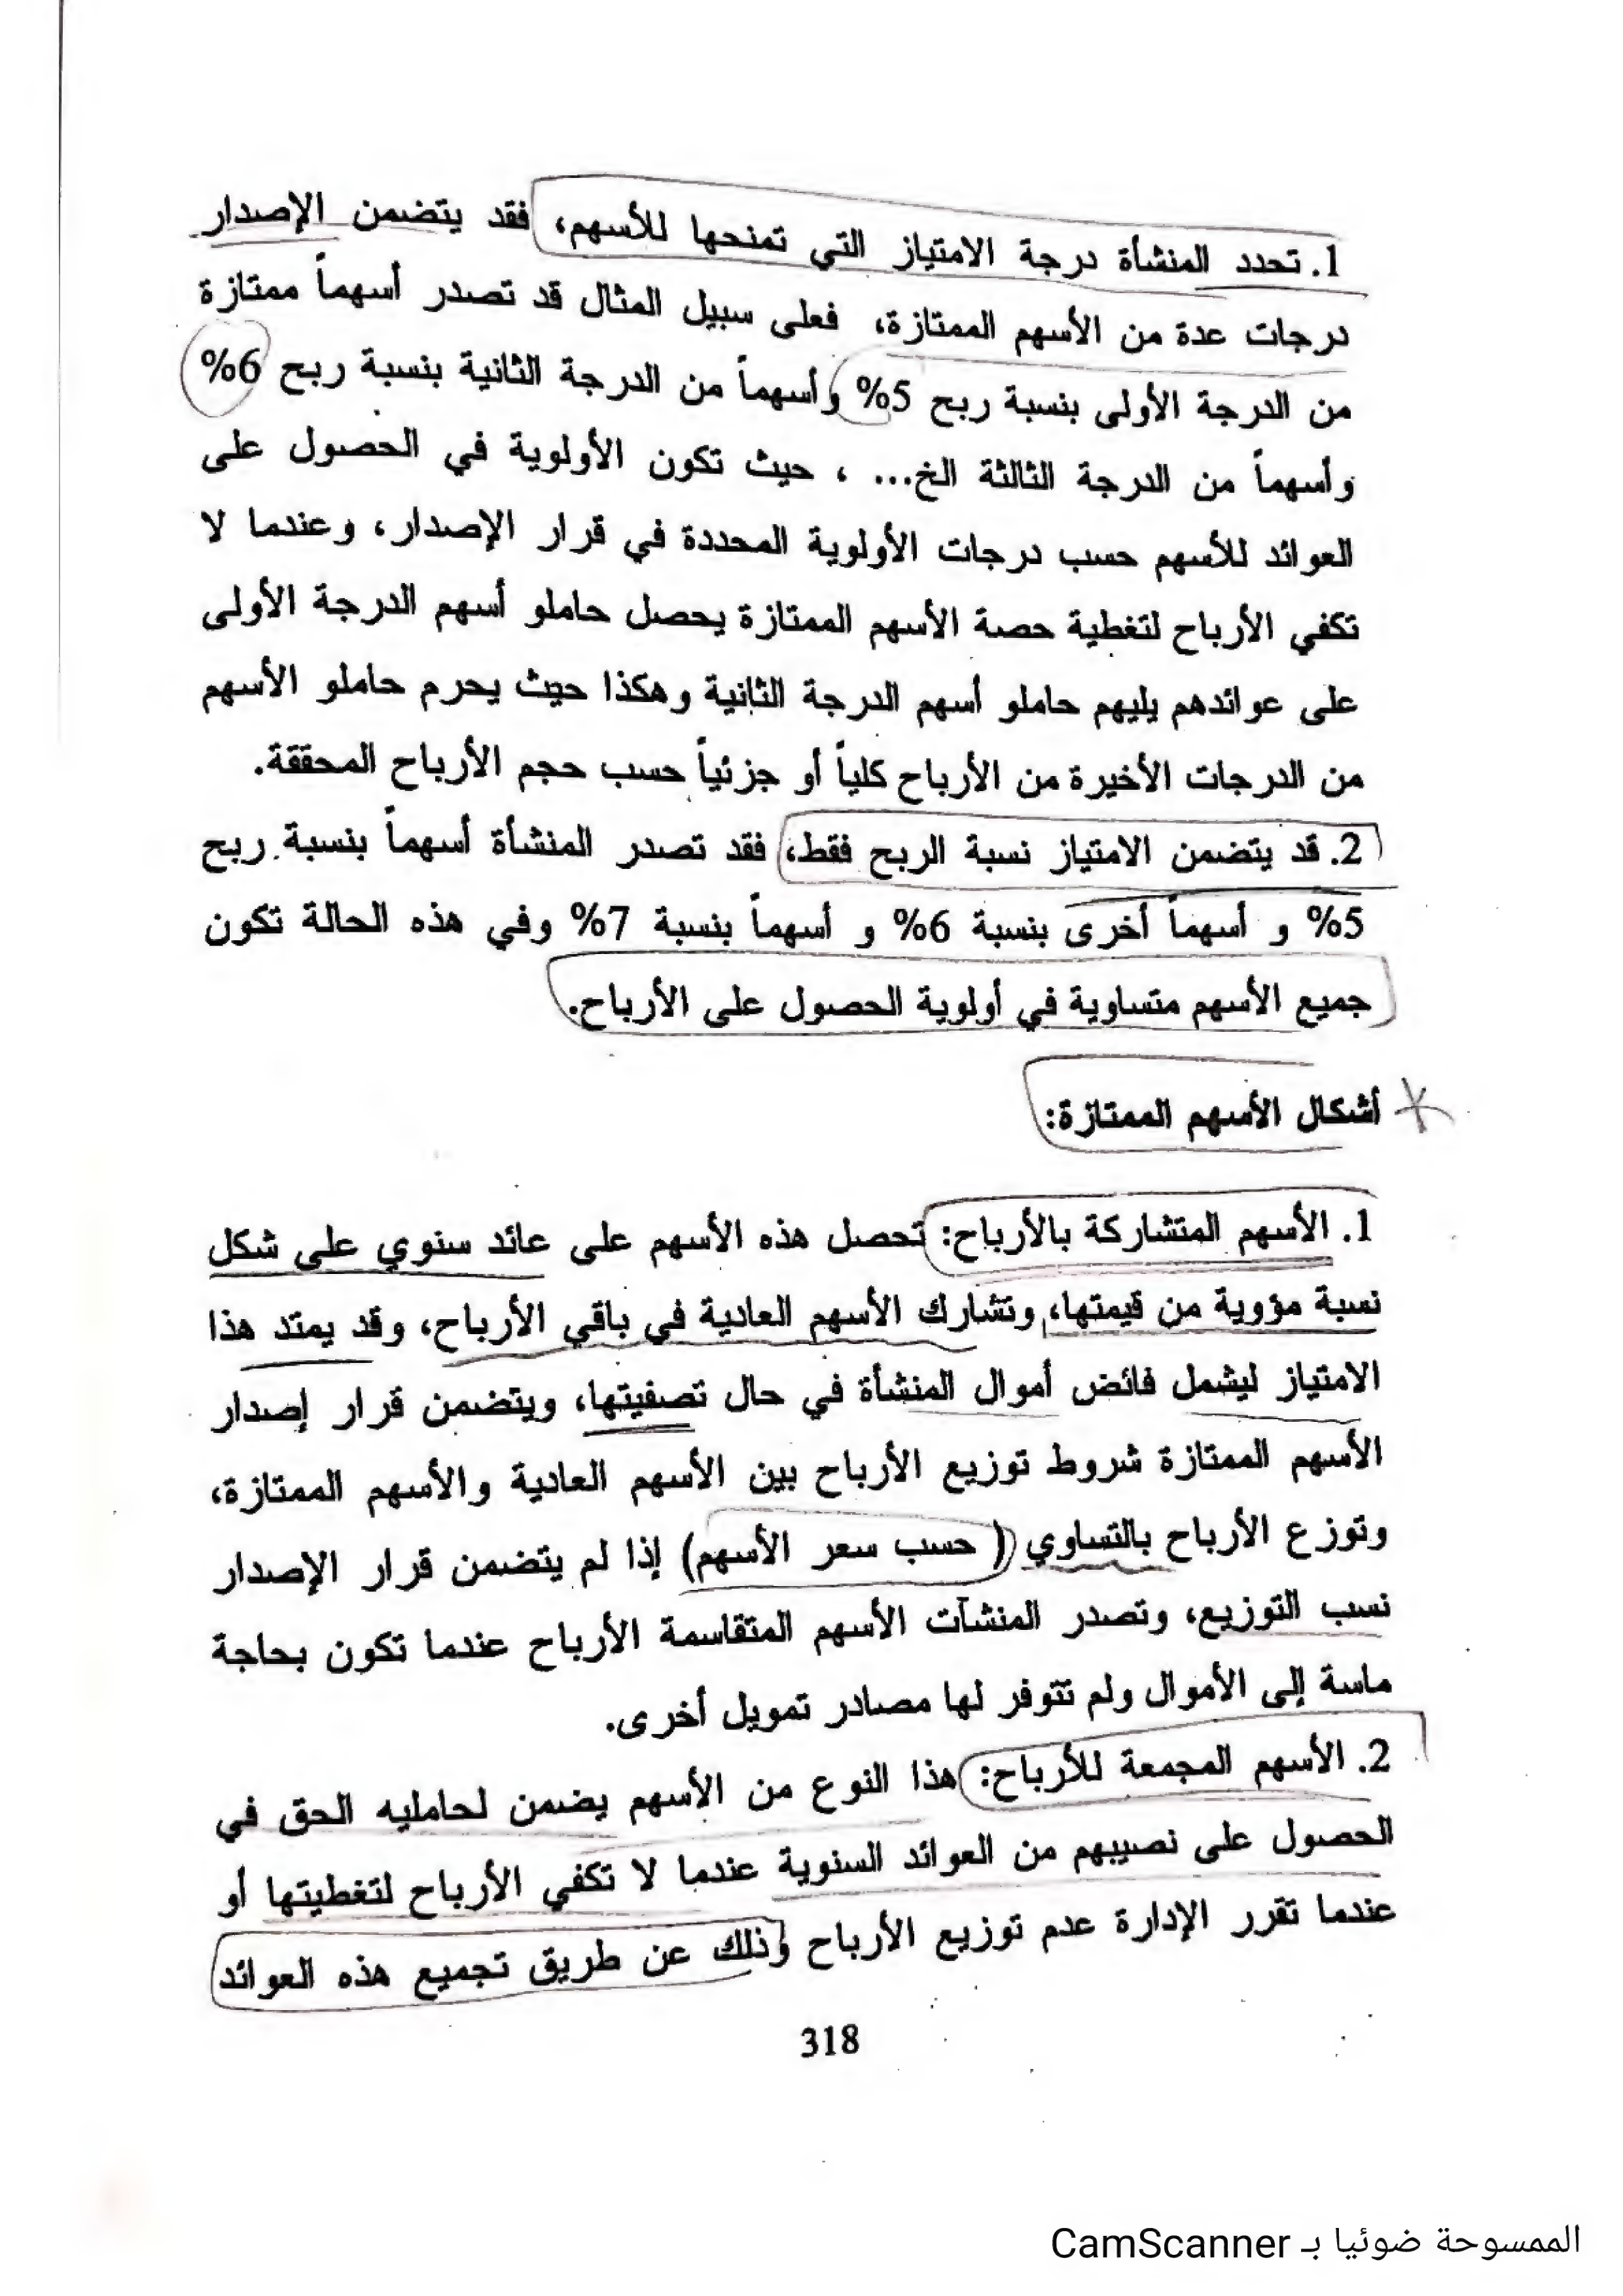 1. تحدد المنشأة درجة الامتياز التي تمنحها للأسهم، فقد يتضمن الإصدار
درجات عدة من الأسهم الممتازة، فعلى سبيل المثال قد تصدر أسهماً ممتازة
من الدرجة الأولى بنسبة ربح 5% وأسهماً من الدرجة الثانية بنسبة ربح 6%
وأسهماً من الدرجة الثالثة الخ... ، حيث تكون الأولوية في الحصول على
العوائد للأسهم حسب درجات الأولوية المحددة في قرار الإصدار، وعندما لا
تكفي الأرباح لتغطية حصة الأسهم الممتازة يحصل حاملو أسهم الدرجة الأولى
على عوائدهم يليهم حاملو أسهم الدرجة الثانية وهكذا حيث يحرم حاملو الأسهم
من الدرجات الأخيرة من الأرباح كلياً أو جزئياً حسب حجم الأرباح المحققة.
2. قد يتضمن الامتياز نسبة الربح فقط، فقد تصدر المنشأة أسهماً بنسبة ربح
5% و أسهماً أخرى بنسبة 6% و أسهماً بنسبة 7% وفي هذه الحالة تكون
جميع الأسهم متساوية في أولوية الحصول على الأرباح.
أشكال الأسهم الممتازة:
1. الأسهم المتشاركة بالأرباح: تحصل هذه الأسهم على عائد سنوي على شكل
نسبة مؤوية من قيمتها، وتشارك الأسهم العادية في باقي الأرباح، وقد يمتد هذا
الامتياز ليشمل فائض أموال المنشأة في حال تصفيتها، ويتضمن قرار إصدار
الأسهم الممتازة شروط توزيع الأرباح بين الأسهم العادية والأسهم الممتازة،
وتوزع الأرباح بالتساوي ( حسب سعر الأسهم) إذا لم يتضمن قرار الإصدار
نسب التوزيع، وتصدر المنشآت الأسهم المتقاسمة الأرباح عندما تكون بحاجة
ماسة إلى الأموال ولم تتوفر لها مصادر تمويل أخرى.
2. الأسهم المجمعة للأرباح: هذا النوع من الأسهم يضمن لحامليه الحق في
الحصول على نصيبهم من العوائد السنوية عندما لا تكفي الأرباح لتغطيتها أو
عندما تقرر الإدارة عدم توزيع الأرباح وذلك عن طريق تجميع هذه العوائد
318
الممسوحة ضوئيا بـ CamScanner